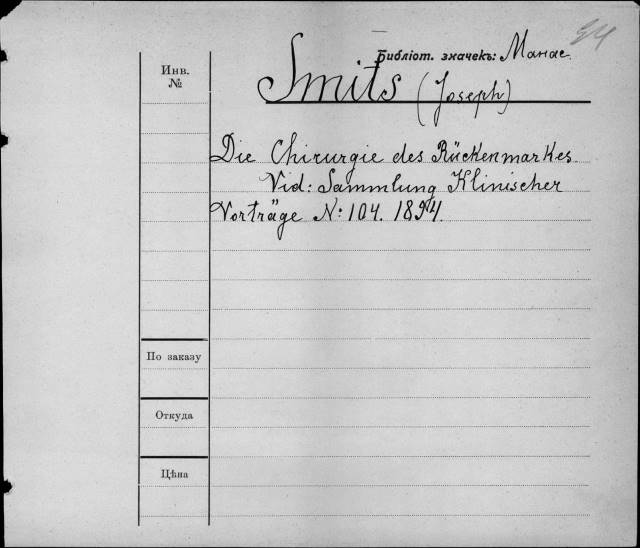 Библіот. значекъ: Манас
Инв.
№
Smits (Joseph)
Die Chirurgie des Rückenmarkes.
Vid: Sammlung Klinischer
Vorträge N: 104. 1894.
По заказу
Откуда
Цѣна